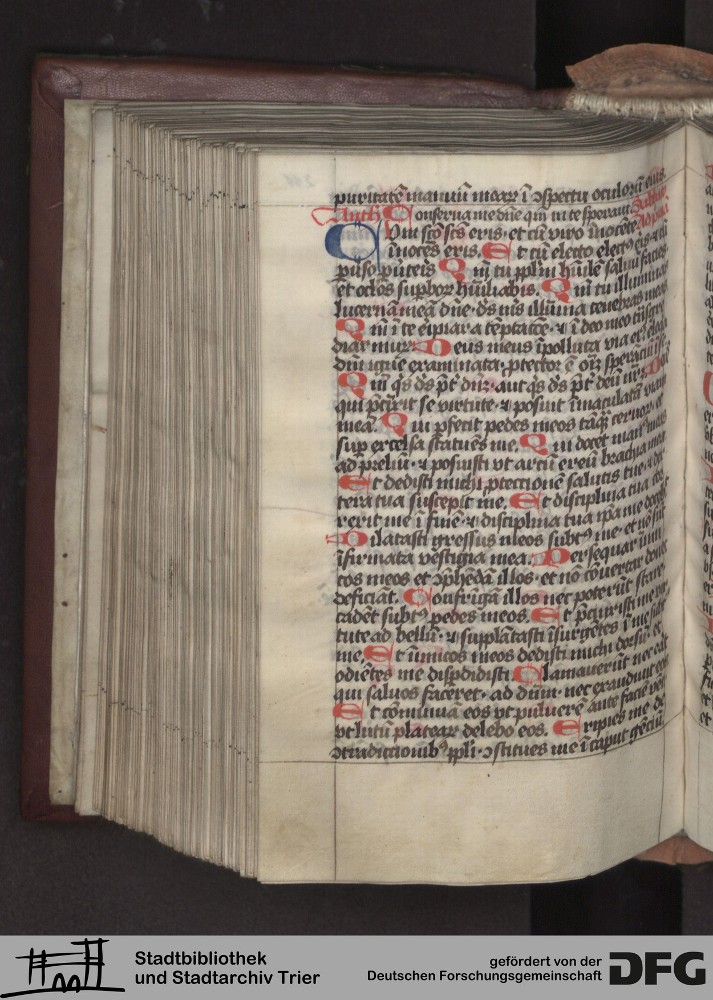 puritatē manuū mearꝝ ī ↄspectu oculorū eius
Anth Conserua me dn̄e qm̄ in te speraui Sabbato
Cum scō scs eris et cū viro īnocēte Ad pri
īnocēs eris Et cū electo elect⁹ eris et cū
puso puteris Qm̄ tu pplm̄ hūilē saluū facies
et oclos supborꝝ hūiliabis Qm̄ tu illuminas
lucernā meā dn̄e ds ms illūina tenebras meas
Qm̄ ī te eipiar a tēptacōe et ī deo meo tūsgre
diar murū Deus meus īpolluta via ei⁹ eloqa
dm̄ igne examinata ptector ē oīm sperāciū ī se
Qm̄ qs ds pt dn̄z aut qs ds pt deū nrm̄ Deus
qui pcīxit se virtute et posuit īmaculatā viam
meā Qui pfecit pedes meos tāqȝ ceruorꝝ et
sup excelsa statuēs me Qui docet man⁹ meas
ad preliū et posuisti vt arcū ereū brachia mea
Et dedisti michi ptectionē salutis tue et dex
tera tua suscepit me Et disciplina tua cor
rexit me ī finē et disciplina tua ipa me docebit
Dilatasti gressus meos subt⁹ me et nō sūt
īfirmata vestigia mea Persequar inimi
cos meos et ↄphēdā illos et nō cōuertar donec
deficiāt Confrīgā illos nec poterūt stare
cadēt subt⁹ pedes meos Et pcīxisti me vir
tute ad bellū et supplātasti īsurgētes ī me subt⁹
me Et īimicos meos dedisti michi dorsū et
odiētes me dispdidisti Clamauerūt nec erat
qui saluos faceret ad dūm nec exaudiuit eos
Et cōminuā eos vt puluerē ante faciē vēti
vt lutū platearꝝ delebo eos Eripies me de
ↄtradiccionib⁹ ppli ↄstitues me ī caput gēciū
Stadtbibliothek
und Stadtarchiv Trier
gefördert von der
Deutschen Forschungsgemeinschaft
DFG